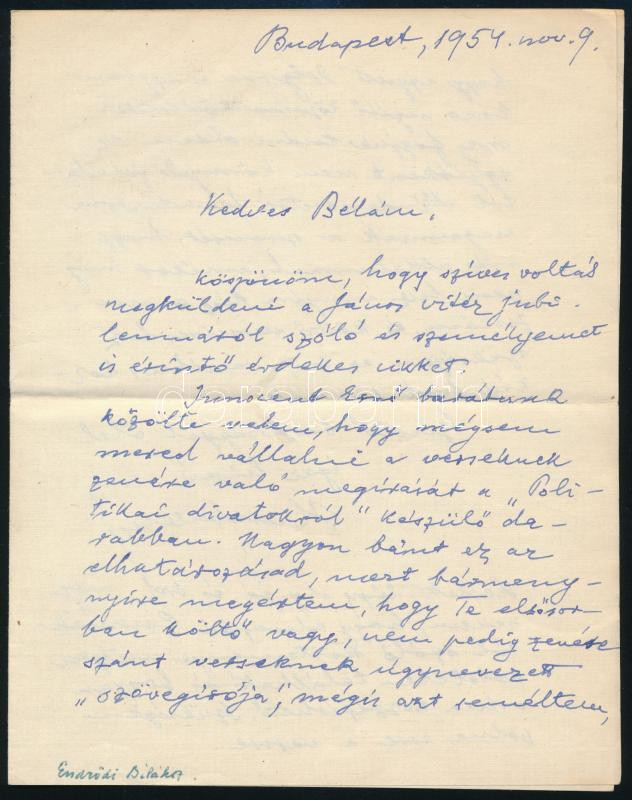 Budapest, 1954. nov. 9.
Kedves Bélám,
köszönöm, hogy szíves voltál
megküldeni a János vitéz jubi-
leumáról szóló és személyemet
is érintő érdekes cikket.
Innocent Ernő barátunk
közölte velem, hogy mégsem
mered vállalni a verseknek
zenére való megírását a „Poli-
tikai divatokról" készülő da-
rabban. Nagyon bánt ez az
elhatározásod, mert bármeny-
nyire megértem, hogy Te elsősor-
ban költő vagy, nem pedig zenére
szánt verseknek úgynevezett
„szövegírója", mégis azt reméltem,
Endrődi Bélához.
darabanth